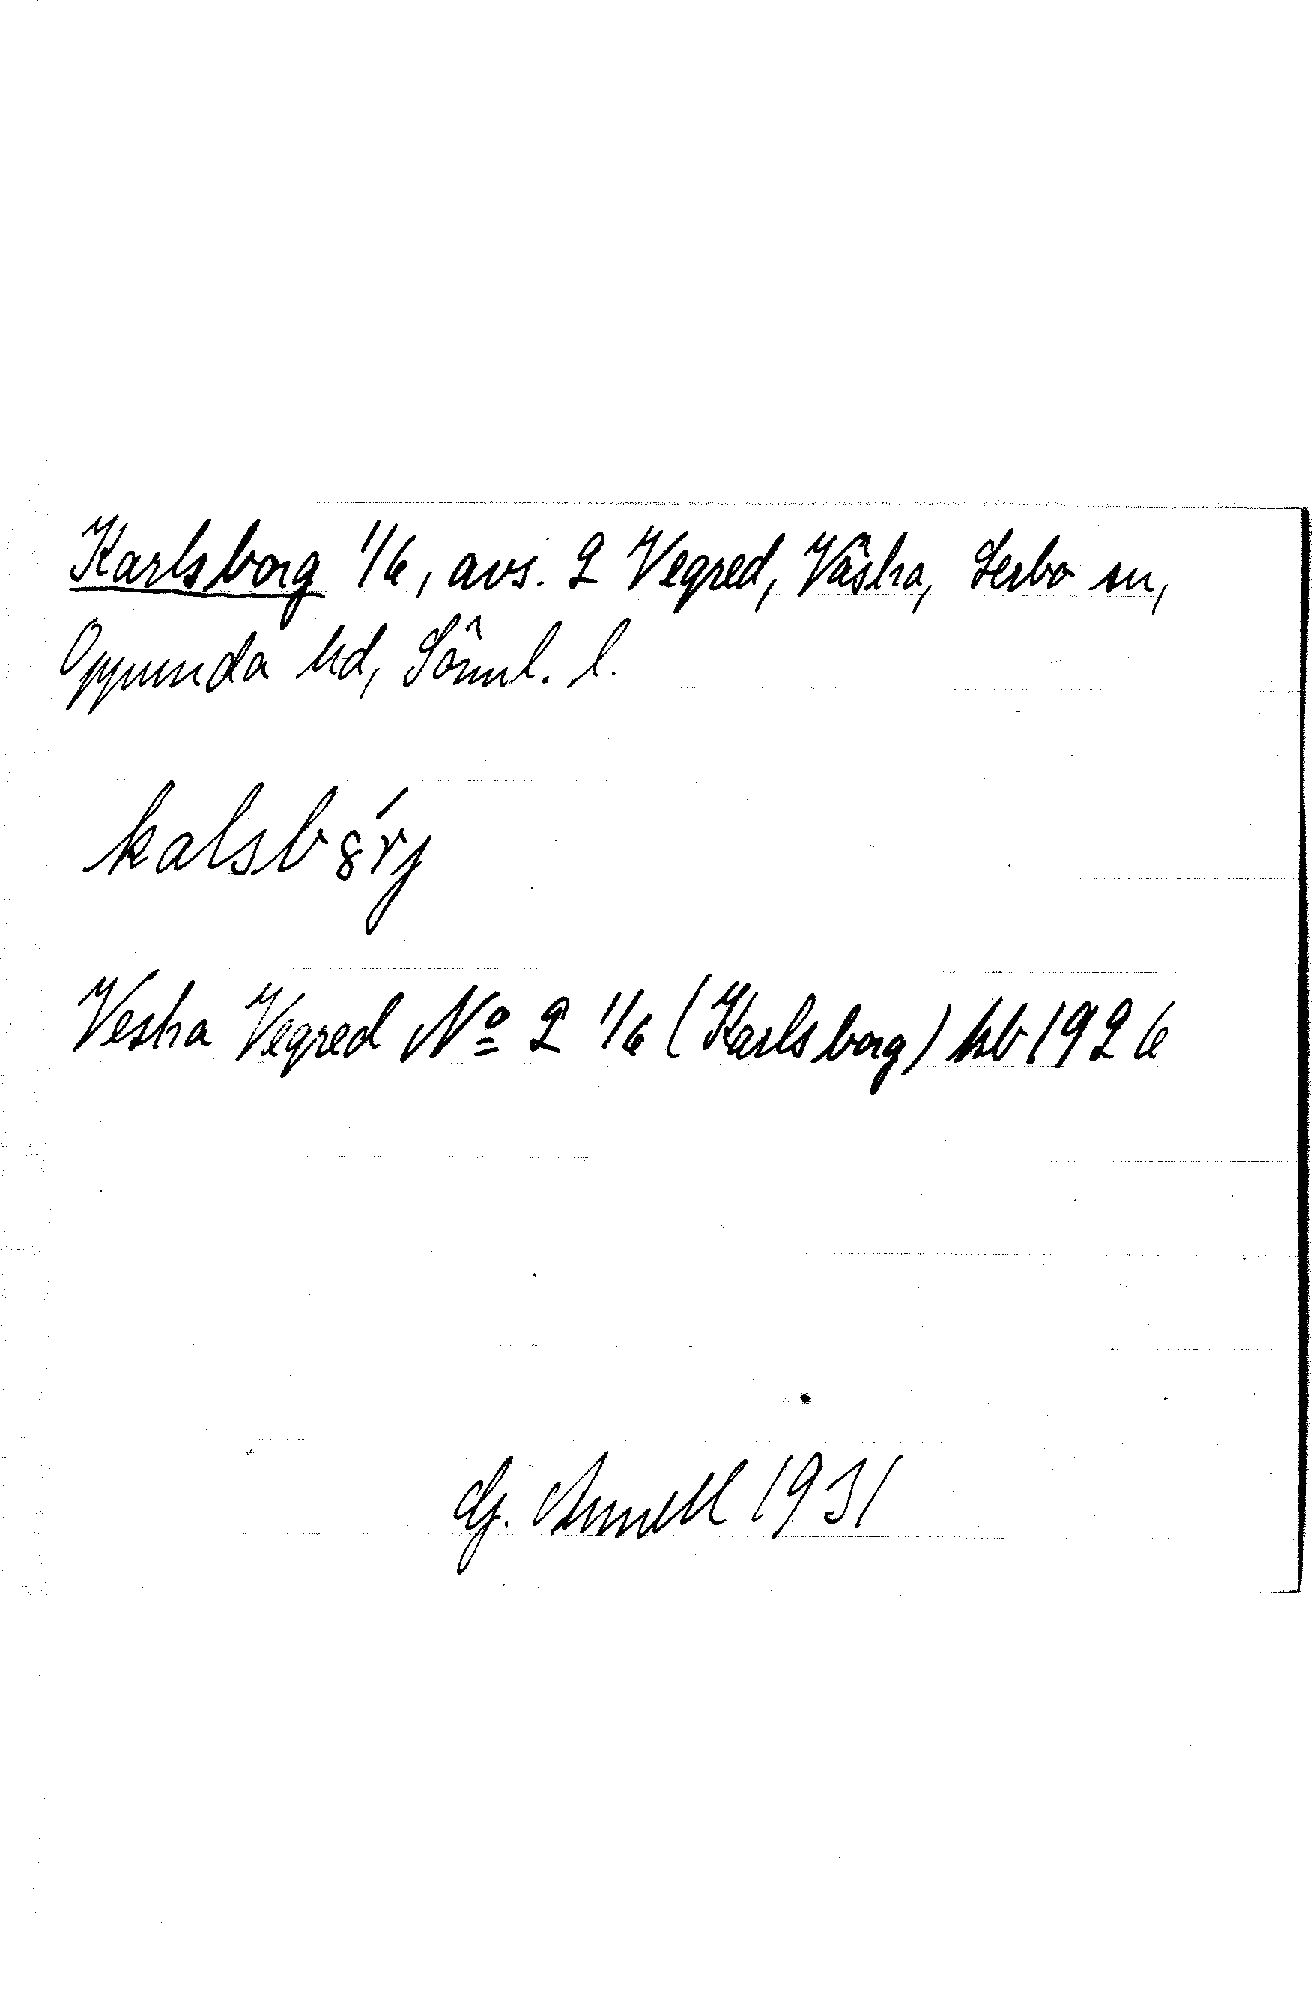 Karlsborg 1/6, avs. 2 Vegred, Västra, Lerbo sn,
Oppunda hd, Sörml. l.
kalsbȣ́rj
Vestra Vegred Nº 2 1/6 (Karlsborg) kb 1926
G. Annell 1931